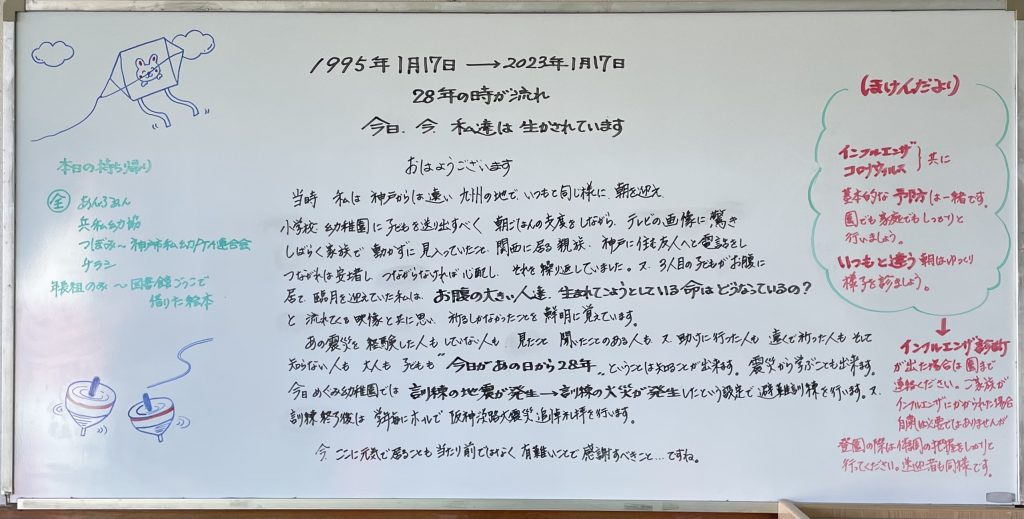 1995年1月17日 → 2023年1月17日
28年の時が流れ
今日、今、私達は生かされています
おはようございます
当時 私は神戸からは遠い九州の地で、いつもと同じ様に、朝を迎え
小学校、幼稚園に子どもを送り出すべく 朝ごはんの支度をしながら、テレビの画像に驚き
しばらく家族で動かずに見入っていたこと、関西に居る親族、神戸に住む友人へと電話をし
つながれば安堵し、つながらなければ心配し、それを繰り返していました。又、3人目の子どもがお腹に
居て、臨月を迎えていた私は、お腹の大きい人達、生まれてこようとしている命はどうなっているの?
と 流れてくる映像と共に思い、祈るしかなかったことを鮮明に覚えています。
あの震災を経験した人もしていない人も、見たこと 聞いたことのある人も、又 助けに行った人も 遠くで祈った人も そして
知らない人も 大人も 子どもも "今日があの日から28年" ということは知ることが出来ます。震災から学ぶことも出来ます。
今日めぐみ幼稚園では 訓練の地震が発生→訓練の火災が発生したという設定で避難訓練を行います。又、
訓練終了後は 学年毎にホールで 阪神淡路大震災追悼礼拝を行います。
今 ここに元気で居ることも 当たり前ではなく 有難いことで 感謝すべきこと…ですね。
本日の持ち帰り
兵私幼協
つぼみ〜神戸市私幼PTA連合会
チラシ
年長組のみ〜図書館ごっこで
借りた絵本
(ほけんだより)
インフルエンザ
コロナウィルス } 共に
基本的な予防は一緒です。
園でも家庭でもしっかりと
行いましょう。
いつもと違う朝はゆっくり
様子を診ましょう。
↓
インフルエンザ診断
が出た場合は園まで
連絡ください。ご家族が
インフルエンザにかかられた場合
自粛は必要ではありませんが
登園の際は体調の把握をしっかりと
行ってください。送迎者も同様です。